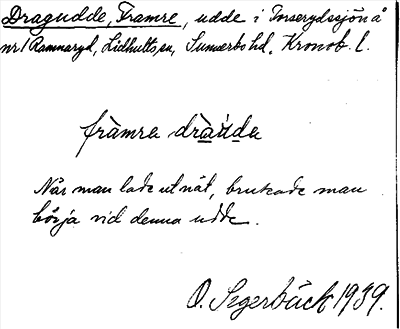 Dragudde, Framre, udde i Torserydssjön å
nr 1 Rammaryd, Lidhults sn, Sunnerbo hd, Kronob. l.
fràmra dràɡúdə
När man lade ut nät, brukade man
börja vid denna udde.
O. Segerbäck 1939.